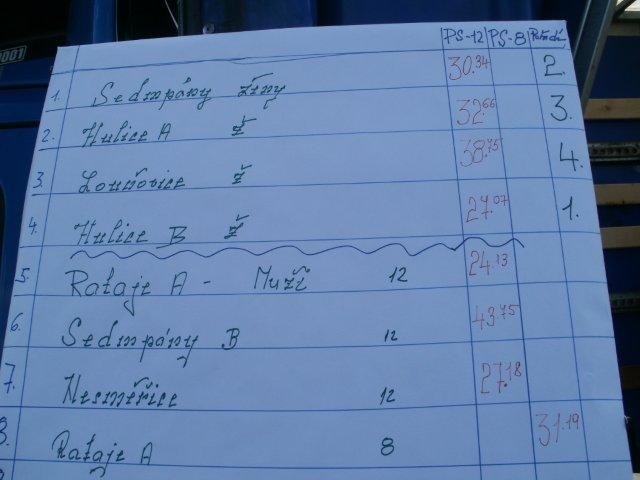 001
PS-12 PS-8 Pořadí
1. Sedmpány Ženy 30.34 2.
2. Hulice A Ž 32.66 3.
3. Louňovice Ž 38.75 4.
4. Hulice B Ž 27.07 1.
5. Rataje A - Muži 12 24.13
6. Sedmpány B 12 43.75
7. Nesměřice 12 27.18
8. Rataje A 8 31.19